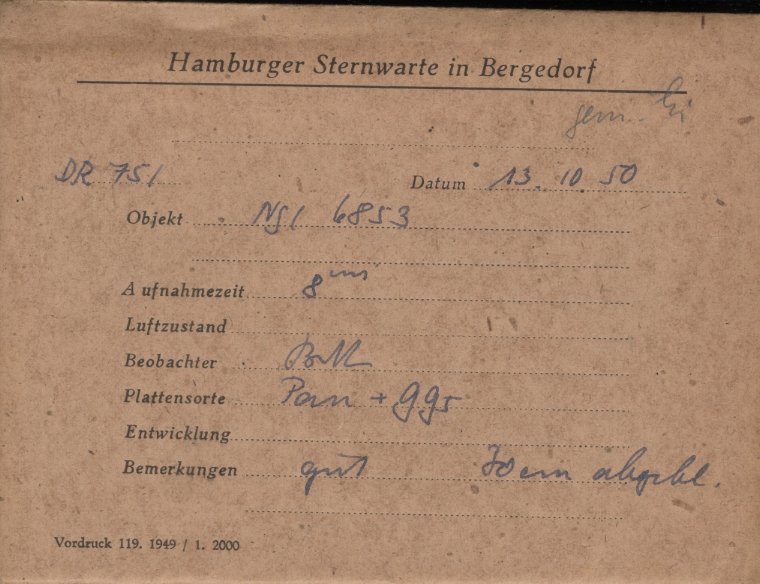 Hamburger Sternwarte in Bergedorf
gem.
DR 751
Datum 13. 10 50
Objekt NGC 6853
Aufnahmezeit 8 m
Luftzustand
Beobachter
Plattensorte Pan + GG5
Entwicklung
Bemerkungen gut 70 cm abgebl.
Vordruck 119. 1949 / 1. 2000